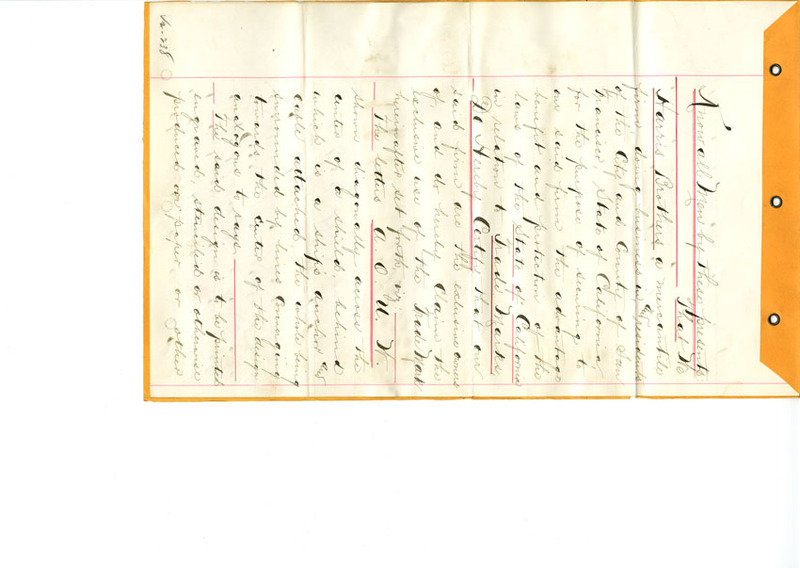 Know all Men by these presents
That We
Harris Brothers a mercantile
firm doing business in
of the City and County of San
Francisco, State of California,
for the purpose of securing to
our said firm the advantage
benefit and protection of the
laws of the State of California
in relation to Trade Marks
Do Hereby Certify that our
said firm are the exclusive owners
of and do hereby Claim the
exclusive use of the Trade Mark
hereinafter set forth viz
The letters A. O. U. W.
shown diagonally across the
center of a shield behind
which is a ships anchor and
cable attached the whole being
surrounded by lines converging
towards the center of the design
analogous to rays
The said design is to be printed
engraved, stenciled or otherwise
produced on paper or other
No. 238